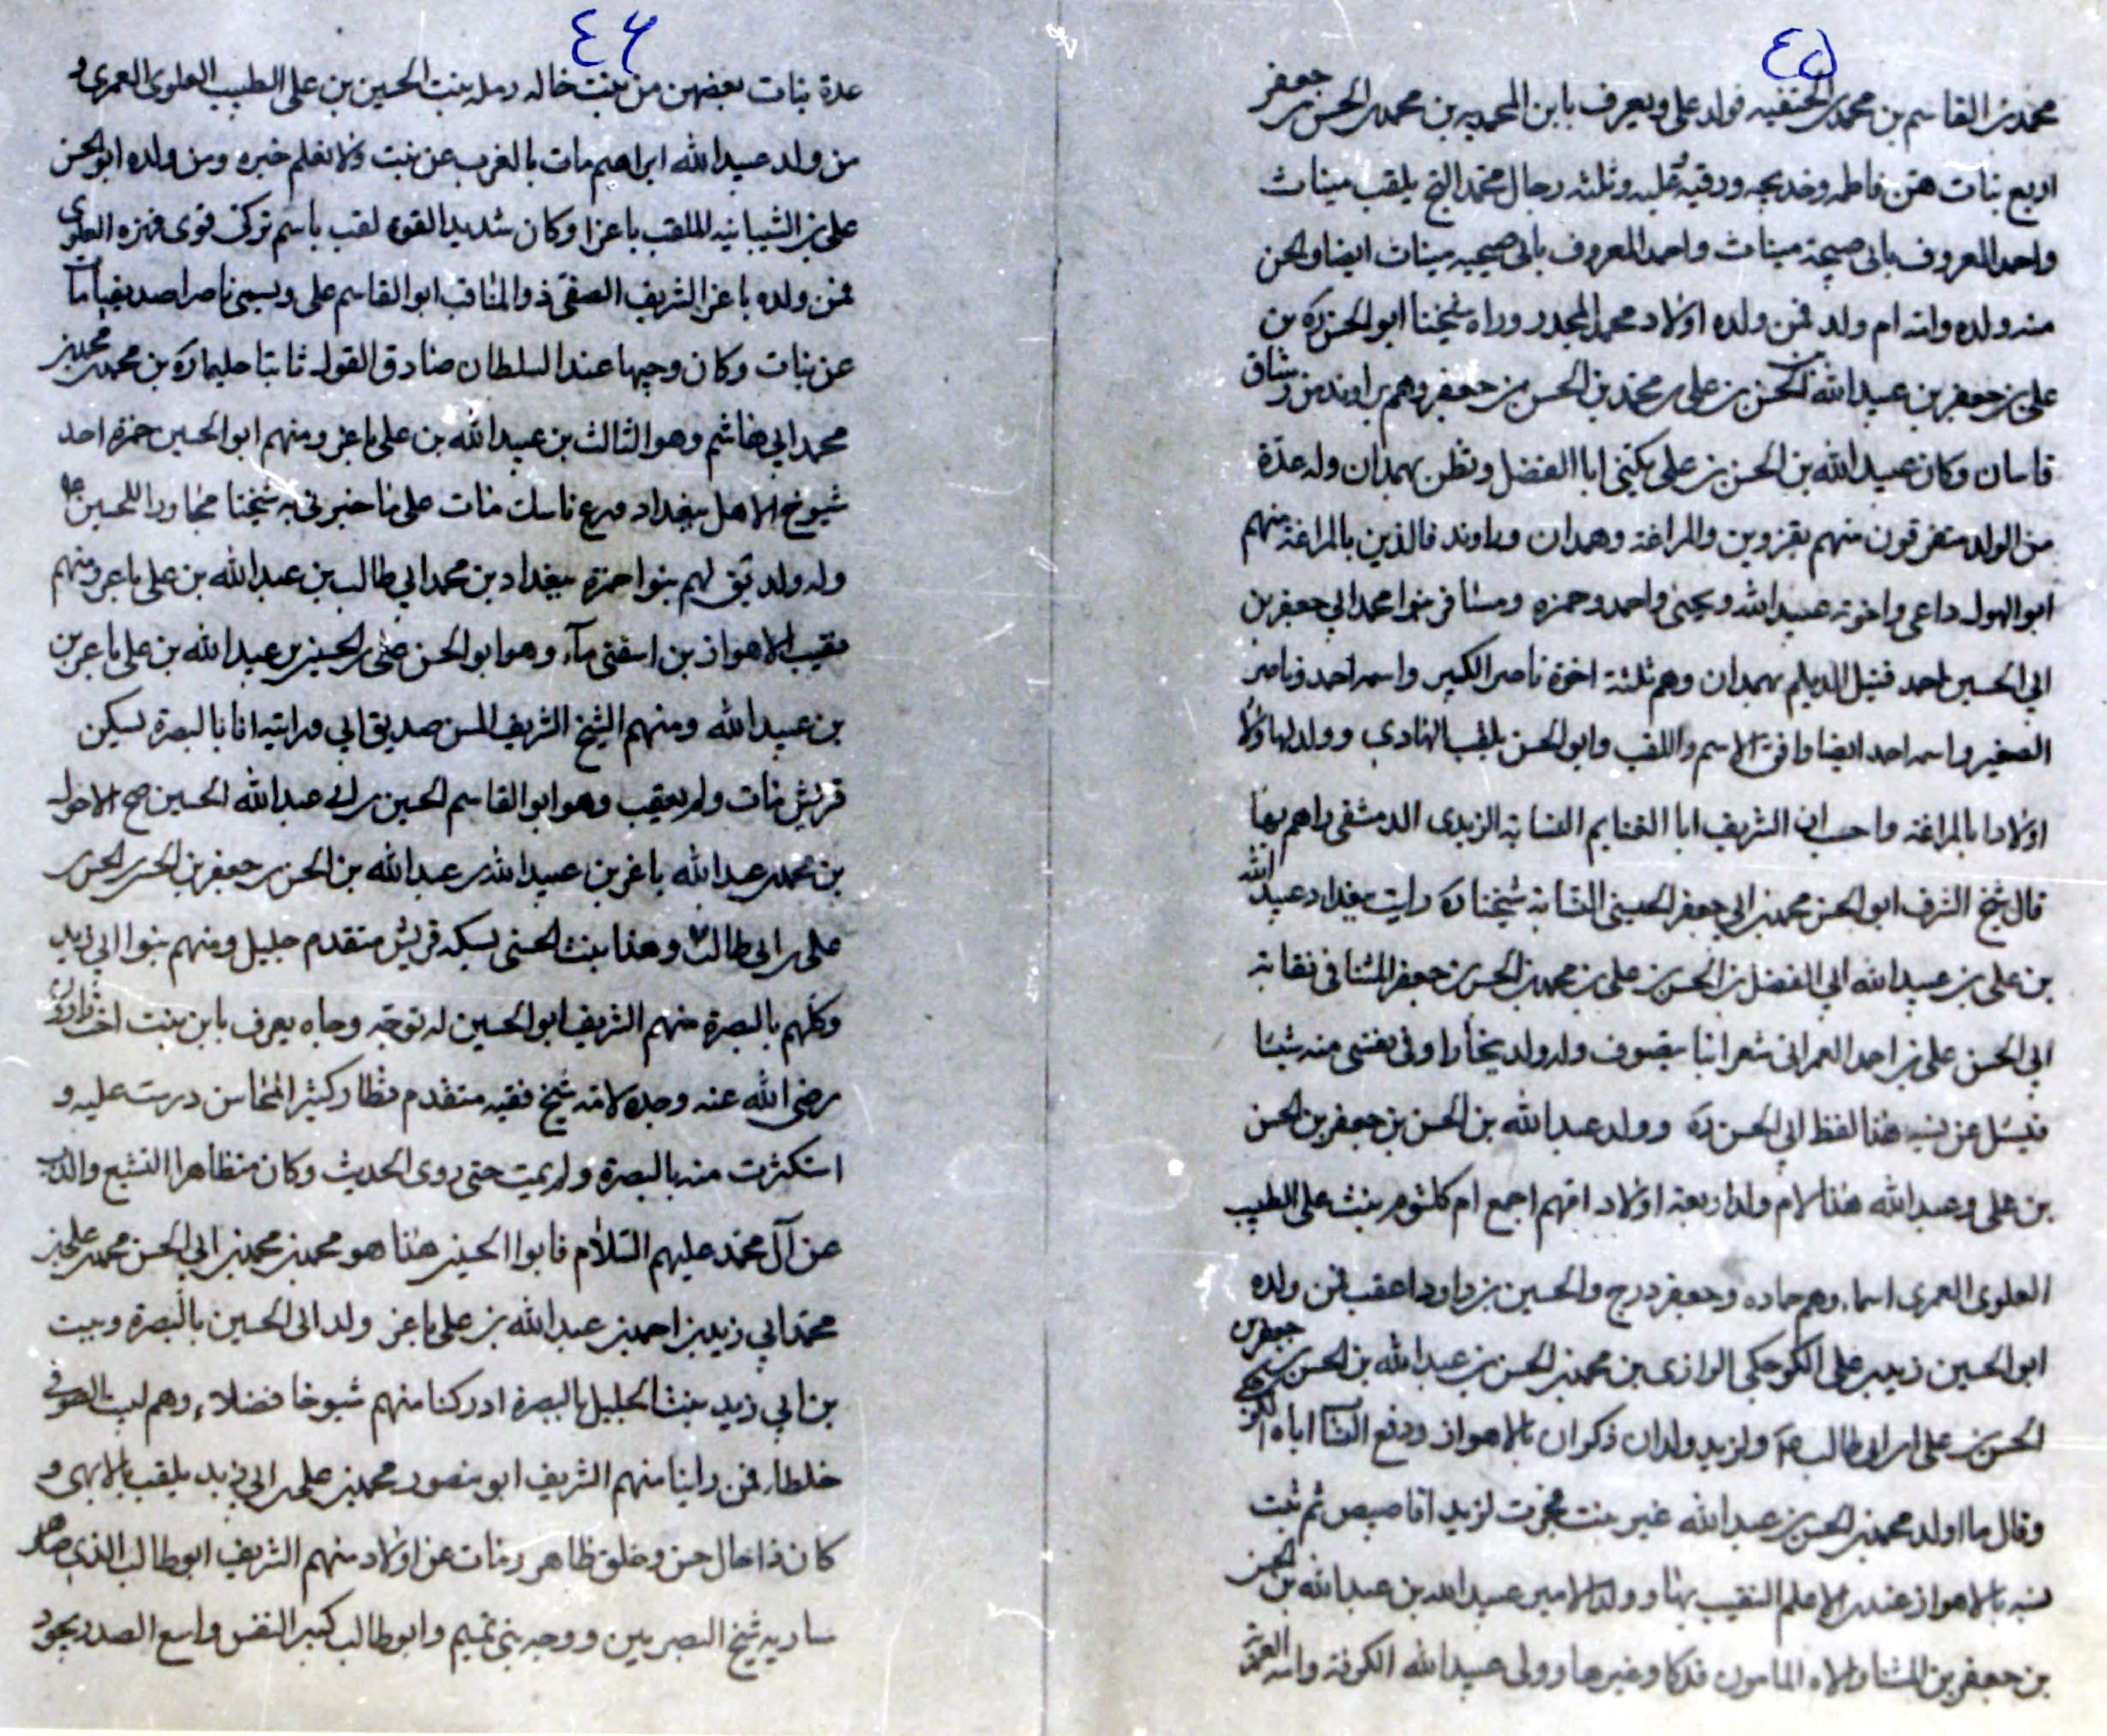 ٤٥
محمد بن القاسم بن محمد بن الحنفيه فولد علي ويعرف بابن المحمديه بن محمد بن الحسن بن جعفر
اربع بنات هن فاطمه وخديجه ورقيه وعليه وثلثه رجال محمد الخ يلقب ميناث
واحمد المعروف بابي صبيحة ميناث واحمد المعروف بابي صبيحه ميناث ايضا والحسن
منه ولده وانه ام ولد فمن ولده اولاد محمد المجدر وراه شيخنا ابو الحسن ره بن
علي بن جعفر بن عبيد الله بن الحسن بن علي بن محمد بن الحسن بن جعفر وهم براوند من رستاق
قاسان وكان عبيد الله بن الحسن بن علي يكنى ابا الفضل وقطن بهمدان وله عدة
من الولد متفرقون منهم بقزوين والمراغة وهمدان وراوند فالذين بالمراغة منهم
ابو الهول داعي واخوته عبيد الله ويحيى واحمد وحمزه ومسافر بنوا محمد ابي جعفر بن
ابي الحسين احمد قتيل الديلم بهمدان وهم ثلثة اخوة ناصر الكبير واسمه احمد وناصر
الصغير واسمه احمد ايضا وافق الاسم واللقب وابو الحسن يلقب الهادي وولد لهاولاء
اولادا بالمراغة واحسب ان الشريف ابا الغنايم النسابة الزيدي الدمشقي راهم بها
قال شيخ الشرف ابو الحسن محمد بن ابي جعفر الحسيني النسابة شيخنا ره رايت ببغداد عبيد الله
بن علي بن عبيد الله ابي الفضل بن الحسن بن علي بن محمد بن الحسن بن جعفر المثنا في نقابة
ابي الحسن علي بن احمد العمراني شعرانيا يتصوف وله ولد ببخارا وفي نفسي منه شيئا
فيسل عن نسبه هذا لفظ ابي الحسن ره وولد عبد الله بن الحسن بن جعفر بن الحسن
بن علي وعبد الله هذا لام ولد اربعة اولاد امهم اجمع ام كلثوم بنت علي الطيب
العلوي العمري اسماء وهم حماده وجعفر درج والحسين بن داود اعقب فمن ولده
ابو الحسين زيد بن علي الكوجكي الرازي بن محمد بن الحسن بن عبد الله بن الحسن بن جعفر بن
الحسن بن علي بن ابي طالب ع ولزيد ولدان ذكران بالاهواز ودفع النسا اباه
وقال ما اولد محمد بن الحسن بن عبد الله غير بنت فجرت لزيد اقاصيص ثم ثبت
نسبه بالاهواز عند الاعلم النقيب بها وولد الامير عبيد الله بن عبد الله بن الحسن
بن جعفر بن المثنا ولاه المامون فدكا وغيرها وولى عبيد الله الكوفة وامه العمرية
٤٦
عدة بنات بعضهن من بنت خاله رمله بنت الحسين بن علي الطيب العلوي العمري و
من ولد عبيد الله ابراهيم مات بالغرب عن بنت ولا نعلم خبره ومن ولده ابو الحسن
علي بن الشيبانيه الملقب باغرا وكان شديد القوة لقب باسم تركي قوي فهزه العلوي
فمن ولده باغر الشريف الصفي ذو المناقب ابو القاسم علي ويسمى ناصرا صديقنا مات
عن بنات وكان وجيها عند السلطان صادق القول ثابتا حليما ره بن محمد بن محمد بن
محمد ابي هاشم وهو الثالث بن عبيد الله بن علي باغر ومنهم ابو الحسين حمزة احد
شيوخ الاهل ببغداد ورع ناسك مات على ما خبرني به شيخنا مجاورا للحسين ع
وله ولد بقي لهم بنوا حمزة ببغداد بن محمد ابي طالب بن عبد الله بن علي باغر ومنهم
نقيب الاهواز بن اسقني ماء وهو ابو الحسن علي بن الحسين بن عبيد الله بن علي باغر بن
بن عبيد الله ومنهم الشيخ الشريف المسن صديق ابي ورايته انا بالبصرة يسكن
قريش مات ولم يعقب وهو ابو القاسم الحسين بن ابي عبد الله الحسين صح الاحول
بن محمد بن عبد الله باغر بن عبيد الله بن عبد الله بن الحسن بن جعفر بن الحسن بن الحسن بن
علي بن ابي طالب ع وهذا بنت الحسني بسكة قريش متقدم جليل ومنهم بنوا ابي زيد
وكلهم بالبصرة منهم الشريف ابو الحسين له توجه وجاه يعرف بابن بنت
رضي الله عنه وجده لامه شيخ فقيه متقدم نظار كثير المحاسن درست عليه و
استكثرت منه بالبصرة ولم يمت حتى روى الحديث وكان متظاهرا التشيع والذب
عن آل محمد عليهم السلام فابوا الحسين هذا هو محمد بن محمد بن ابي الحسن محمد بن علي بن
محمد ابي زيد بن احمد بن عبد الله بن علي باغر ولد ابي الحسين بالبصرة وبيت
بن ابي زيد بيت الجليل بالبصرة ادركنا منهم شيوخا فضلاء وهم
خلطا فمن راينا منهم الشريف ابو منصور محمد بن علي بن ابي زيد يلقب بالابهى و
كان ذا حال حسن وخلق ظاهر ومات عن اولاد منهم الشريف ابو طالب الذي صار
سارية شيخ البصريين ووجه بني تميم وابو طالب كبير النفس واسع الصدر يجود